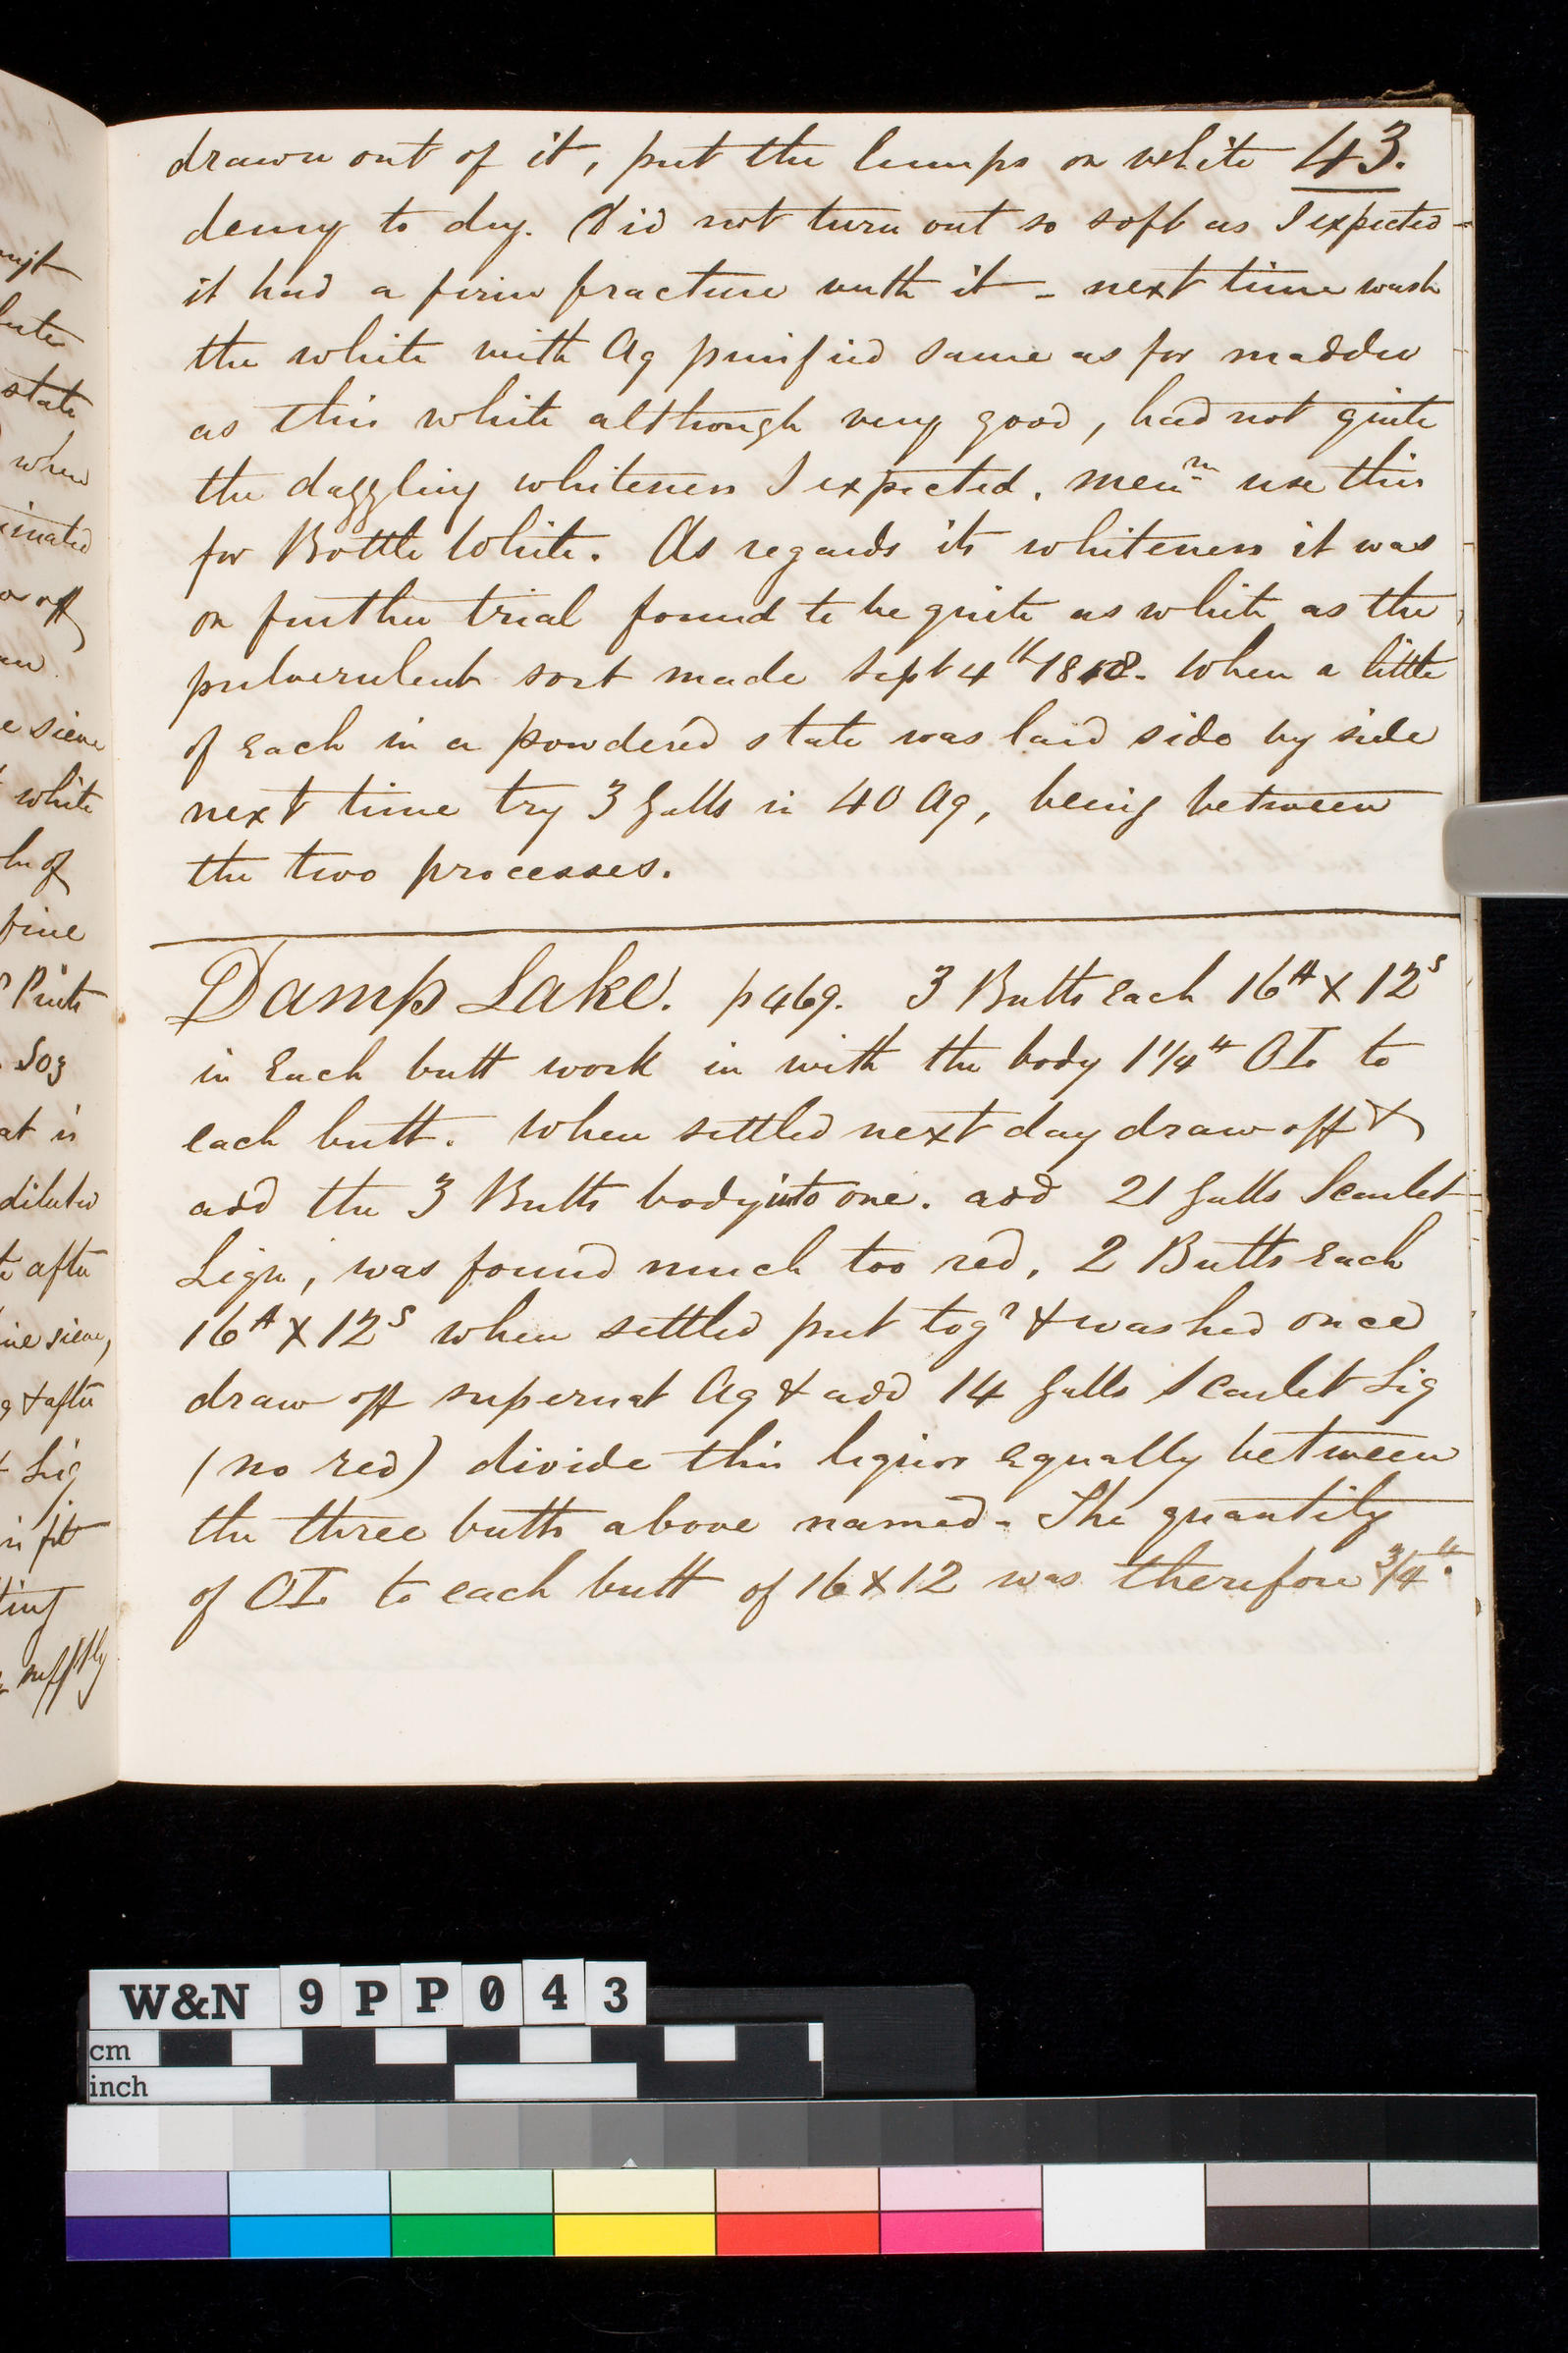 drawn out of it, put the lumps on white 43.
demy to dry. Did not turn out so soft as I expected -
it had a firm fracture with it - next time wash
the white with Aq purified same as for madder
as this white although very good, had not quite
the dazzling whiteness I expected. mem m use this
for Bottle White. As regards its whiteness it was
on further trial found to be quite as white as the
pulverulent sort made Sept 4th 18 . When a little
of each in a powdered state was laid side by side
next time try 3 Galls in 40 Aq, being between
the two processes.
Damp Lake. p469. 3 Butts each 16A X 12S
in each butt work in with the body 1 1/4 " OL to
each butt. When settled next day draw off &
add the 3 Butts body into one. add 21 Galls Scarlet
Liqr, was found much too red. 2 Butts each
16A X 12S when settled put togr & washed once
draw off supernat Aq & add 14 Galls Scarlet Liq
(no red) divide this liquor equally between
the three butts above named - The quantity
of OL to each butt of 16 X 12 was therefore 3/4 ".
mijt
state
when
off
e sieve
white
fine
Pints
at is
diluted
after
ine sieve,
& after
Liq
is fit
W&N 9PP043
cm
inch